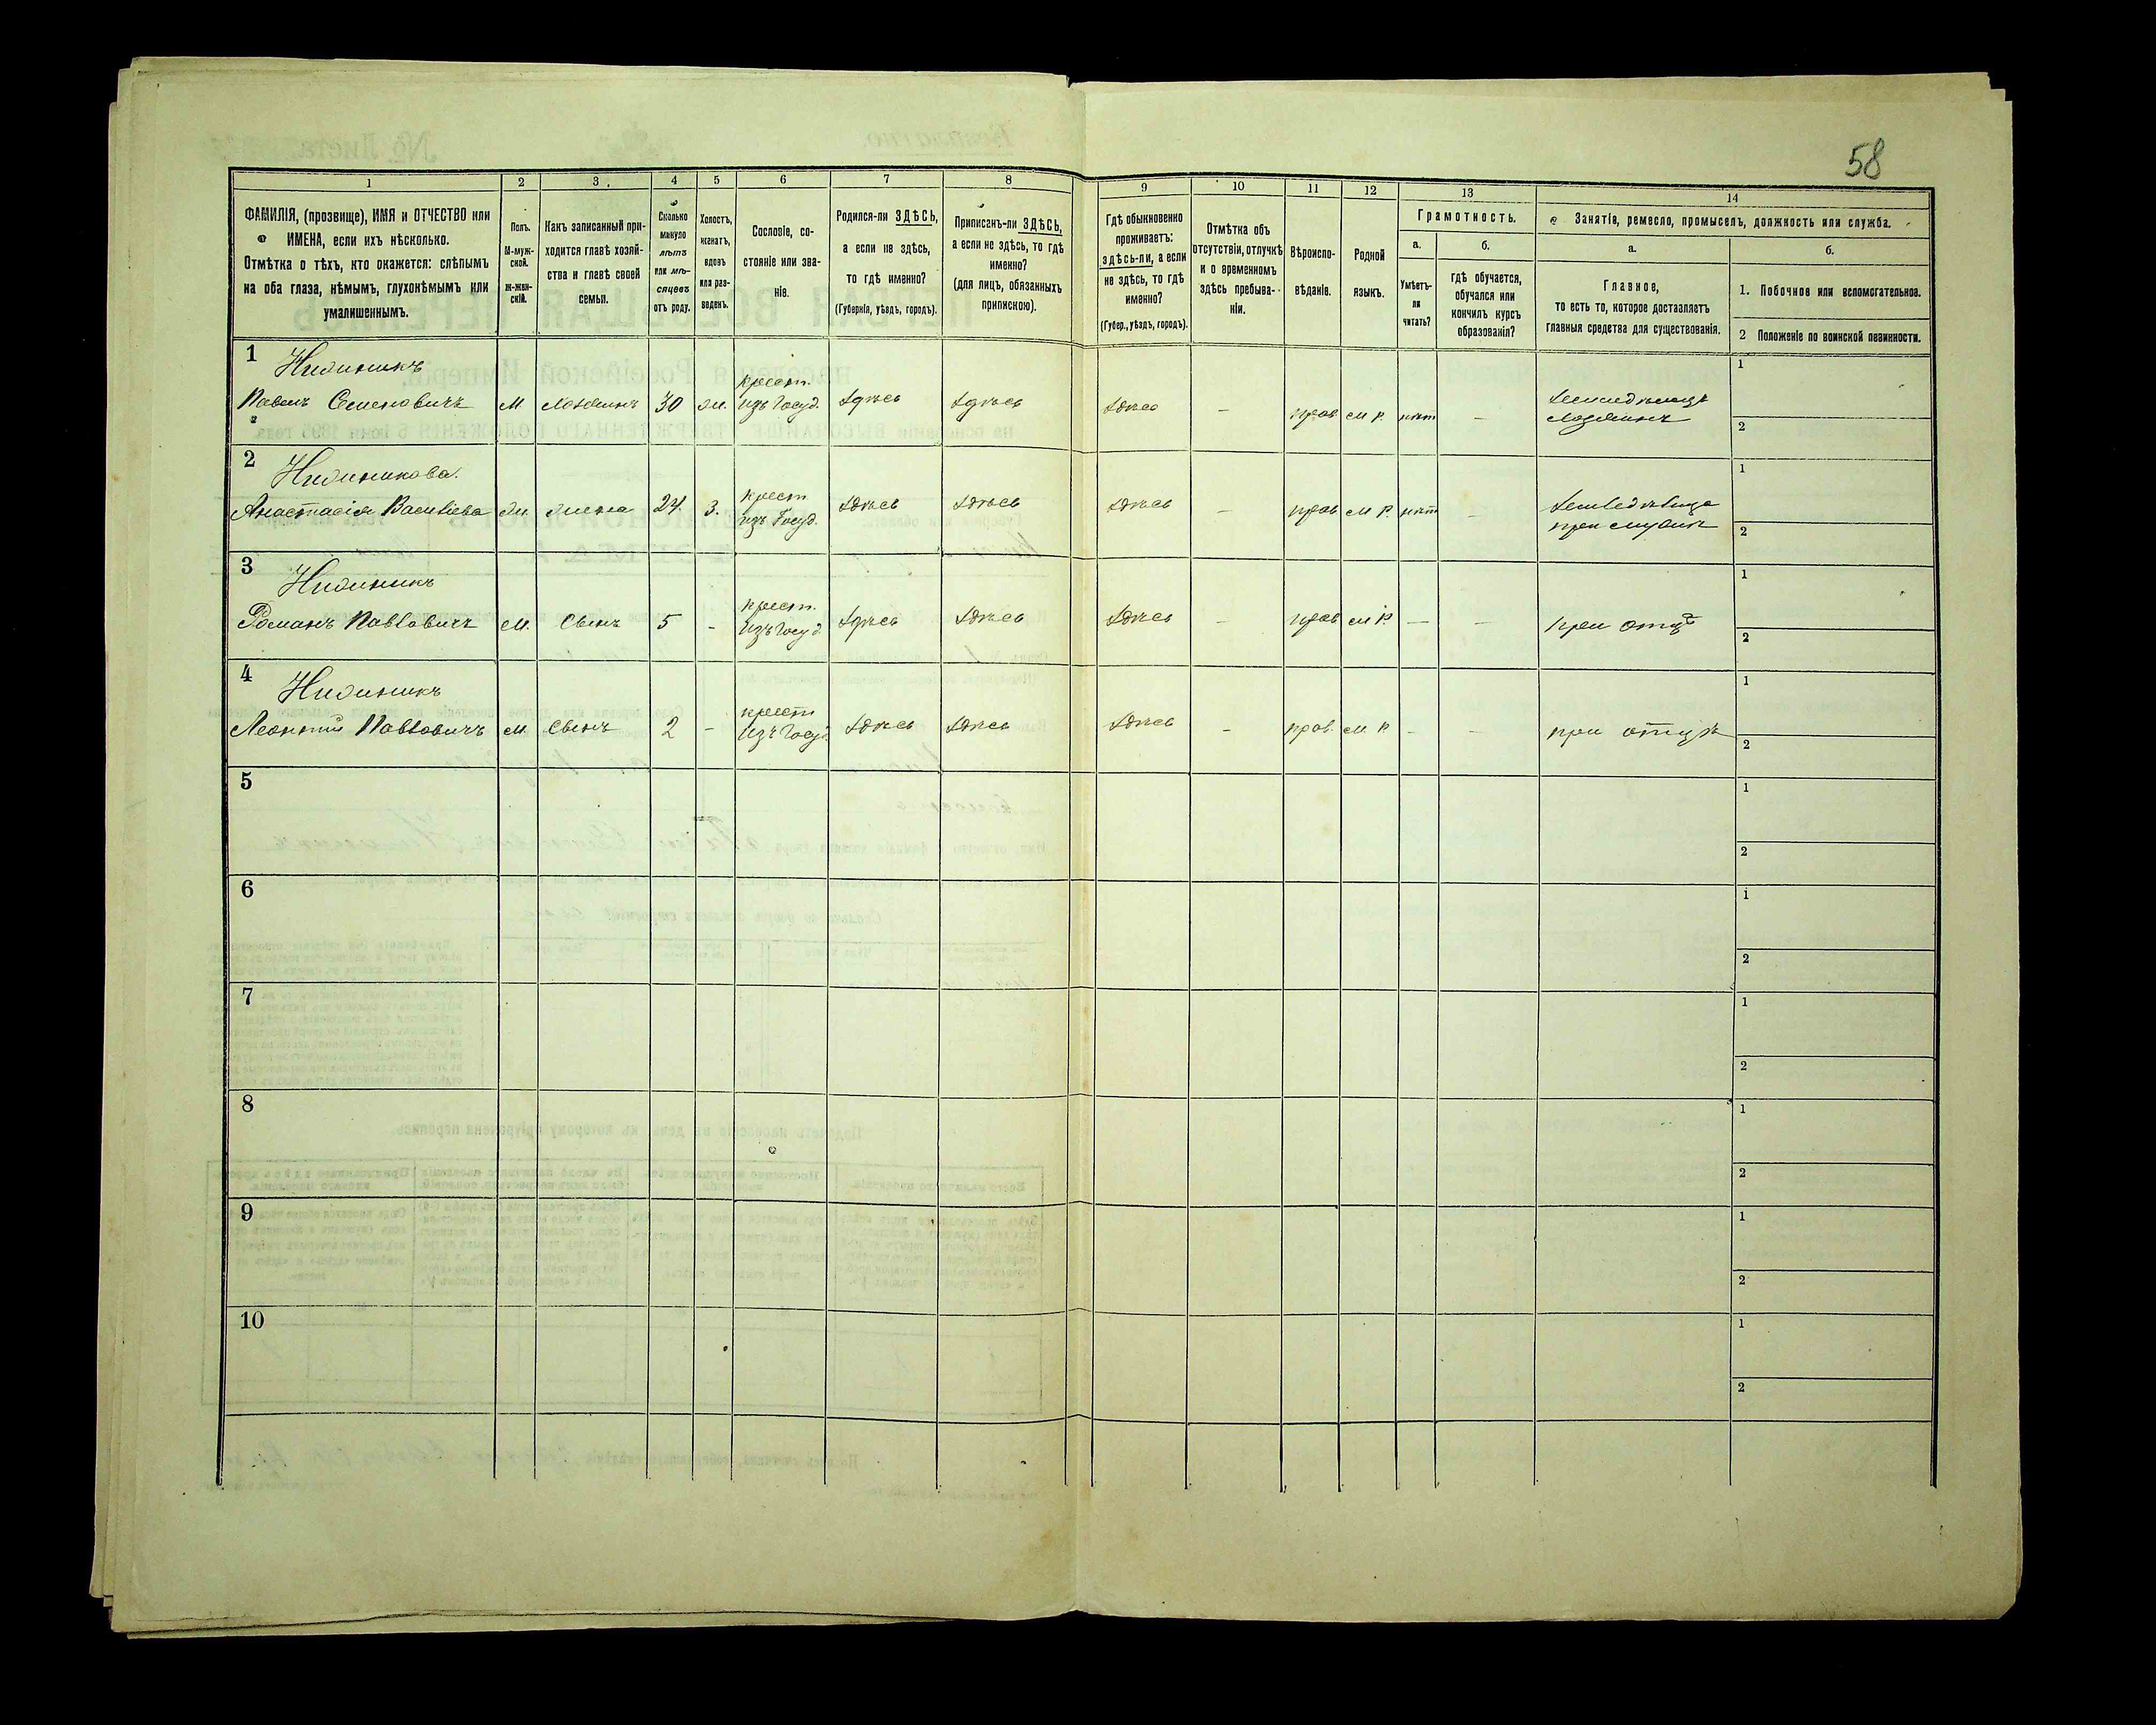 58
1
2
3
4
5
6
7
8
9
10
11
12
13
14
ФАМИЛІЯ, (прозвище), ИМЯ и ОТЧЕСТВО или
ИМЕНА, если ихъ нѣсколько.
Отмѣтка о тѣхъ, кто окажется: слѣпымъ
на оба глаза, нѣмымъ, глухонѣмымъ или
умалишеннымъ.
Полъ.
М-муж-
ской.
ж-жен-
скій.
Какъ записанный при-
ходится главѣ хозяй-
ства и главѣ своей
семьи.
Сколько
минуло
лѣтъ
или мѣ-
сяцевъ
отъ роду.
Холостъ,
женатъ,
вдовъ
или раз-
веденъ.
Сословіе, со-
стояніе или зва-
ніе.
Родился-ли ЗДѢСЬ,
а если не здѣсь,
то гдѣ именно?
(Губернія, уѣздъ, городъ).
Приписанъ-ли ЗДѢСЬ,
а если не здѣсь, то гдѣ
именно?
(для лицъ, обязанныхъ
припискою).
Гдѣ обыкновенно
проживаетъ:
здѣсь-ли, а если
не здѣсь, то гдѣ
именно?
(Губер., уѣздъ, городъ).
Отмѣтка объ
отсутствіи, отлучкѣ
и о временномъ
здѣсь пребыва-
ніи.
Вѣроиспо-
вѣданіе.
Родной
языкъ.
Грамотность.
а.
Умѣетъ-
ли
читать?
б.
гдѣ обучается,
обучался или
кончилъ курсъ
образованія?
Занятіе, ремесло, промыселъ, должность или служба.
а.
Главное,
то есть то, которое доставляетъ
главныя средства для существованія.
б.
1. Побочное или вспомогательное.
2 Положеніе по воинской повинности.
1
Павелъ Семеновичъ м. хозяинъ 30 ж. крест. изъ Госуд. здѣсь здѣсь здѣсь — прав м р. нѣт — земледѣлецъ хозяинъ
1
2
2
Анастасія Васильева ж. жена 24 з. крест изъ Госуд. здѣсь здѣсь здѣсь — прав м р. нѣт — земледѣлица при мужѣ
1
2
3
Романъ Павловичъ м. сынъ 5 - крест. изъ Госуд здѣсь здѣсь здѣсь — прав м р. — — при отцѣ
1
2
4
Леонтій Павловичъ м. сынъ 2 - крест изъ Госуд. здѣсь здѣсь здѣсь — прав. м. р - - при отцѣ
1
2
5
1
2
6
1
2
7
1
2
8
1
2
9
1
2
10
1
2